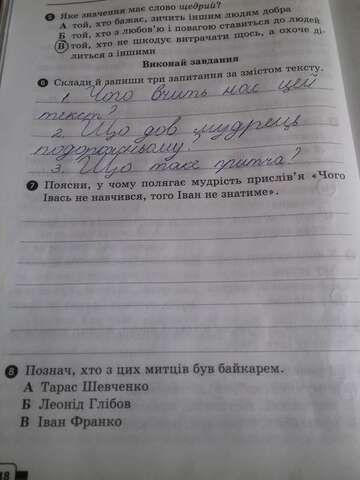 5 Яке значення має слово щедрий?
А той, хто бажає, зичить іншим людям добра
Б той, хто з любов'ю і повагою ставиться до людей
В той, хто не шкодує витрачати щось, а охоче ді-
литься з іншими
Виконай завдання
6 Склади й запиши три запитання за змістом тексту.
1. Чого вчить нас цей
текст?
2. Що дов мудрець
подорожньому?
3. Що таке притча?
7 Поясни, у чому полягає мудрість прислів'я «Чого
Івась не навчився, того Іван не знатиме».
8 Познач, хто з цих митців був байкарем.
А Тарас Шевченко
Б Леонід Глібов
В Іван Франко